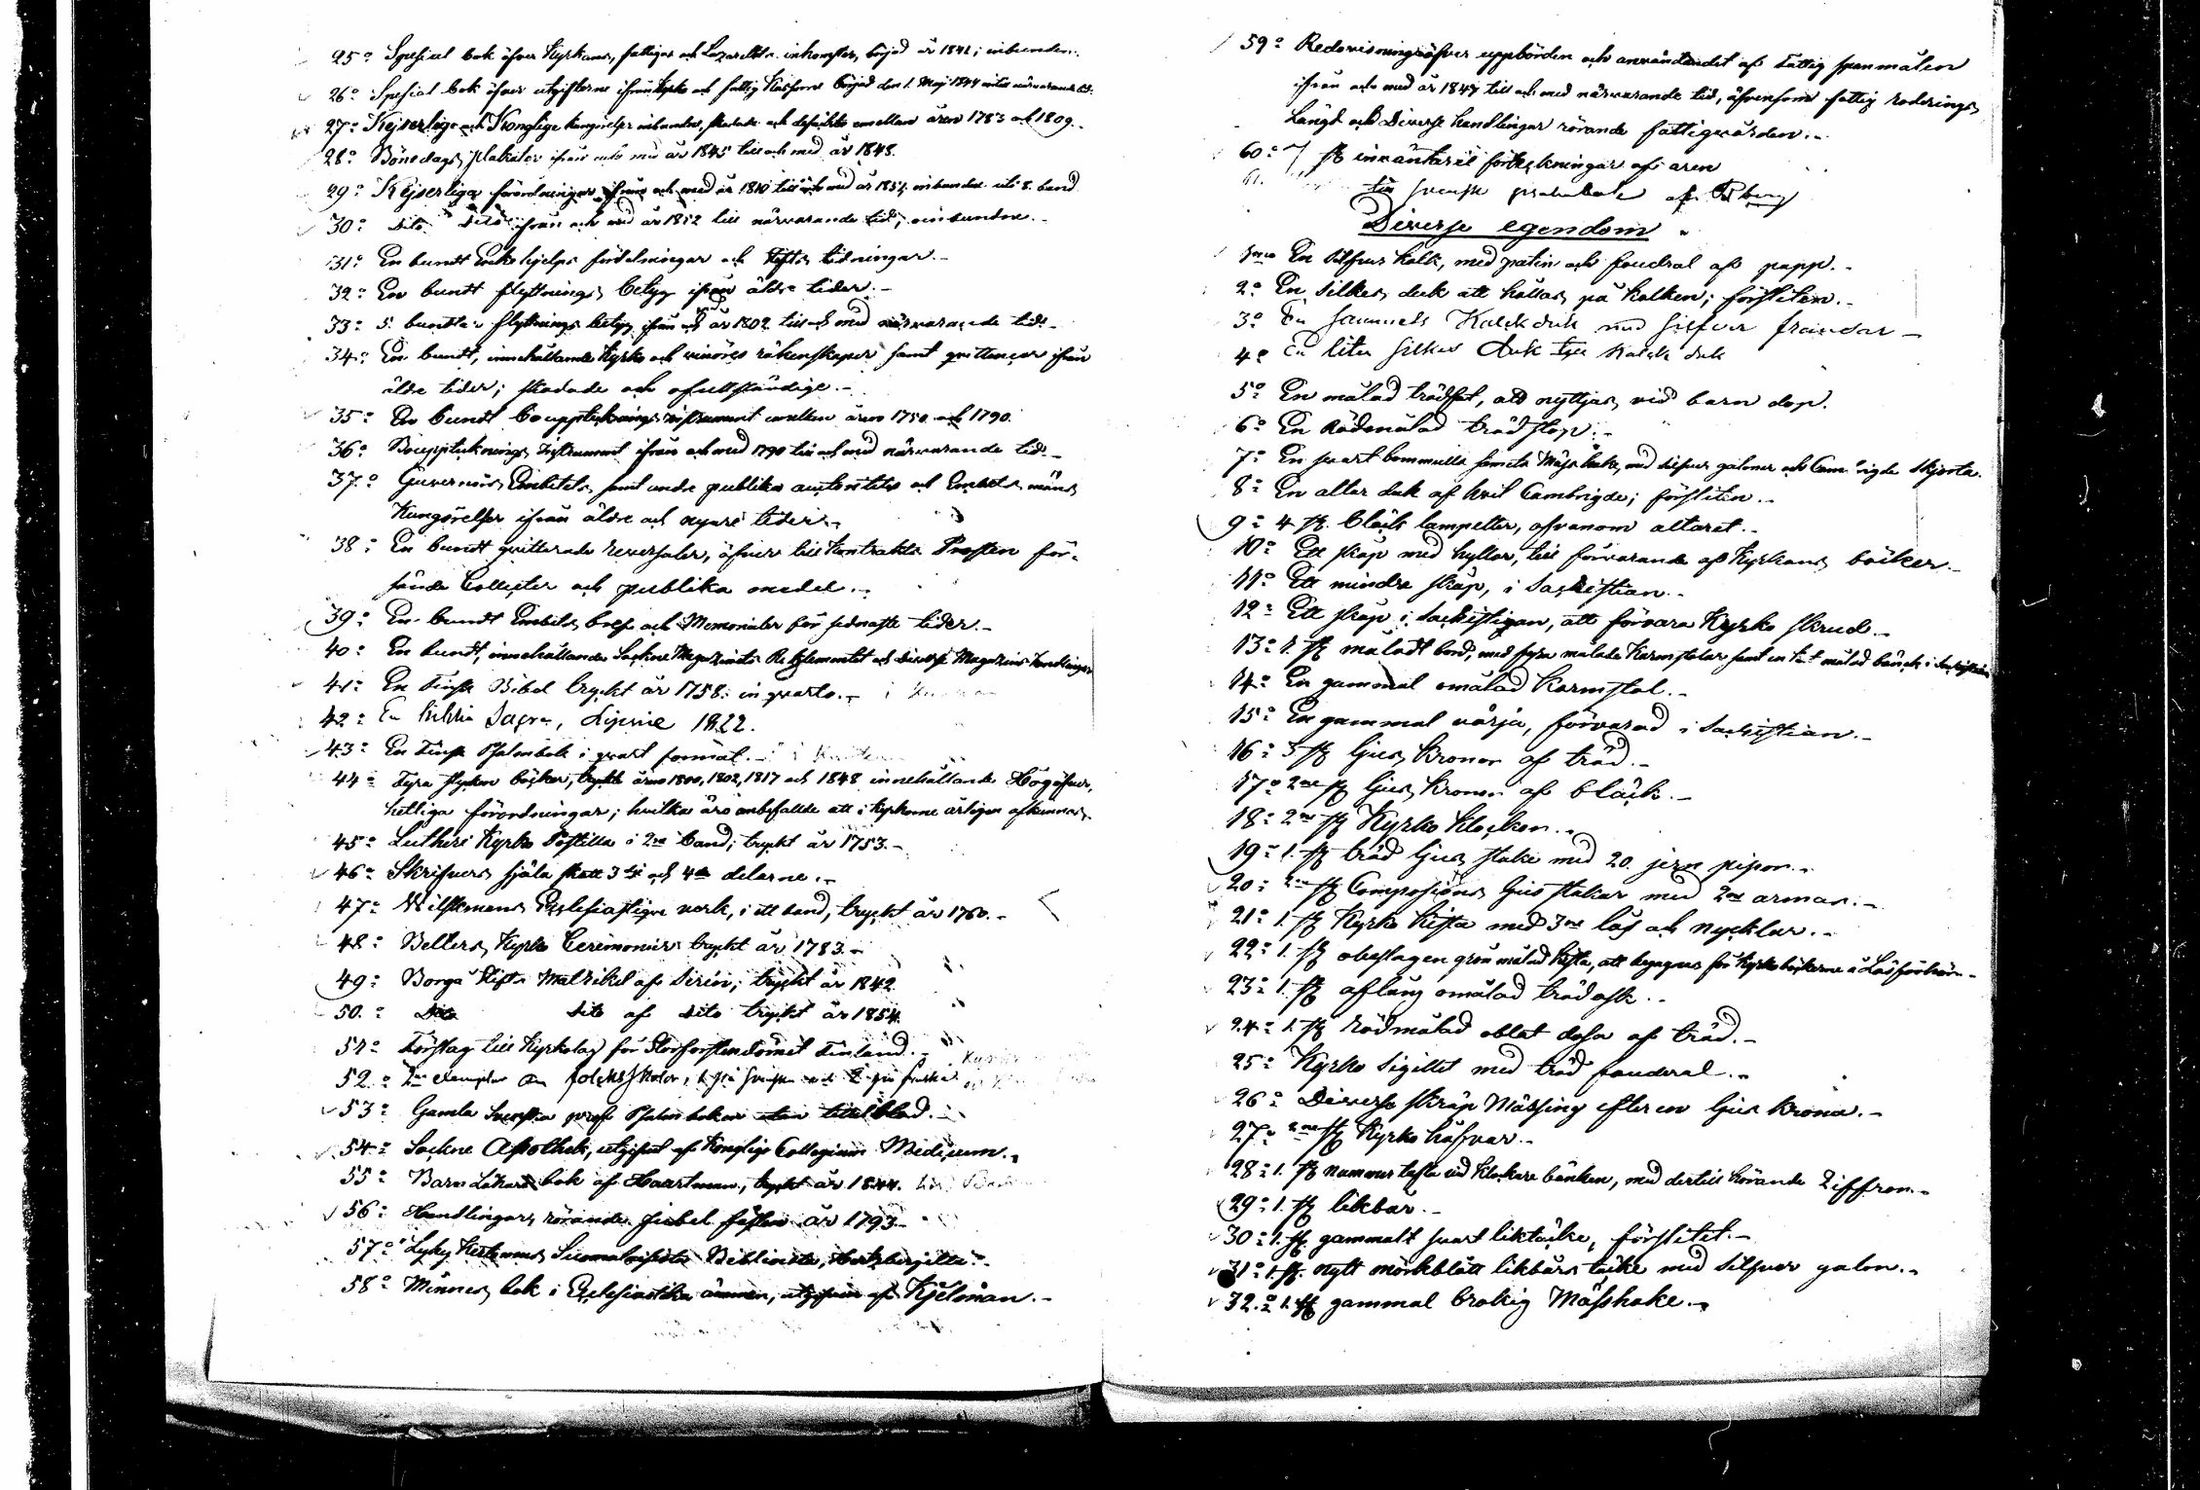 25:o Special bok öfver Kyrkans, fattigas och Lazarettets inkomster, börjad år 1841; inbunden.
26:o Special bok öfver utgifterne ifrån Kyrko och fattig Kassorne börjad den 1. Maj 1844 intill närvarande tid.
27:o Kejserliga och Kongliga kungörelser inbundne, skadade och defeckta emellan åren 1783 och 1809.
28:o Bönedags plakater ifrån och med år 1845 till och med år 1848.
29:o Kejserliga förordningar ifrån och med år 1810 till och med år 1851, inbundne uti 8. band
30:o Dito Dito ifrån och med år 1852 till närvarande tid; oinbundne.
31:o En bundt Enkehjelps fördelningar och Stifts tidningar.
32:o En bundt flyttnings betyg ifrån äldre tider.
33:o 5. bundtar flyttnings betyg ifrån och med år 1802 till och med närvarande tid.
34:o En bundt, innehållande Kyrko och räkenskaper samt qvittencer ifrån
äldre tider; skadade och ofullständige.
35:o En bundt bouppteknings instrument emellan åren 1750 och 1790.
36:o Bouppteknings Instrument ifrån och med 1790 till och med närvarande tid.
37:o Guvernörs Embetets samt andra publika autoriteter och Embets mäns
Kungörelser ifrån äldre och nyare tider.
38:o En bundt qvitterade reversaler, öfver till Kontrakts Prosten för-
sände Collecter och publika medel.
39:o En bundt Embets bref och Memorialer för sednaste tider.
40:o En bundt, innehållande Sockne Magazinets Reglementet och diverse Magazins handlingar
41:o En Finsk Bibel tryckt år 1758. in qvarto.
42:o En Biblia Sacra, Lipsiæ 1822.
43:o En Finsk Psalmbok i qvart format.
44:o Fyra stycken böcker, tryckte åren 1800, 1802, 1817 och 1848 innehållande Högöfver,
hetliga förordningar; hvilka äro anbefallde att i kyrkorne årligen afkunnas.
45:o Lutheri Kyrko Postilla i 2ne band; tryckt år 1753.
46:o Skrifvers själa skatt 3dje och 4de delarne.
47:o Wilskmans Ecclesiastique verk, i ett band, tryckt år 1760.
48:o Bellers Kyrko Ceremonier tryckt år 1783.
49:o Borgå Stifts Matrikel af Sirén; tryckt år 1842
50.o Dito Dito af Dito tryckt år 1854.
51:o Förslag till Kyrkolag för Storfurstendömet Finland.
52.o 2ne exemplar om folckskolor, 1 på svenska och på finska
53:o Gamla Svenska Psalmboken utan titelblad.
54:o Sockne Apothek, utgifvet af Kongliga Collegium Medicum.
55:o Barn Läkare bok af Haartman, tryckt år 1844.
56:o Handlingar rörande Jubel festen år 1793
57:o Lyhy Kertomus Suomalaisesta Bibliasta, Hertzbergiltä.
58:o Minnes bok i Ecclesiastika ämnen, utgifven af Kjelman.
59:o Redovisning öfver uppbörden och användandet af Fattig spanmålen
ifrån och med år 1847 till och med närvarande tid, äfvensom fattig roterings
Längd och Diverse handlingar rörande fattigvården.
60:o 7 st inventarii förteckningar af åren
61. En svensk af
Diverse egendom
1mo En Silfver kalk, med patin och foudral af papp.
2:o En Silkes duk att hållas på kalken; försliten.
3:o En Sammets Kalckduk med silfver frandsar
4:o En liten silkes duk kalck duk
5:o En målad trädfat, att nyttjas vid barn dop.
6:o En Rödmålad trädstop.
7:o En svart bommulls samets Mässhake, med silfver galoner och Cambrigde skjorta.
8:o En altar duk af hvit Cambrigde; försliten.
9:o 4 st. bläcks lampetter, ofvanom altaret.
10:o Ett skåp med hyllor, till förvarande af Kyrkans böcker.
11:o Ett mindre skåp, i Sackristian.
12:o Ett skåp i Sackristigan, att förvara Kyrko skrud.
13:o 1. st måladt bord, med fyra målade Karmstolar samt en målad bänck i Sackristian
14:o En gammal omålad Karmstol.
15:o En gammal värja, förvarad i Sackristian.
16:o 3 st ljus kronor af träd.
17:o 2ne st ljus kronor af bläck.
18:o 2ne st Kyrko klockor.
19:o 1. st träd ljus stake med 20. jern pipor.
20:o 2ne st Compositions ljusstakar med 2ne armar.
21:o 1. st Kyrko kista med 3ne lås och nycklar.
22:o 1. st obeslagen grön målad kista, att begagnas för kyrkoböckerne å Läsförhör.
23:o 1. st aflång omålad trädask.
24:o 1. st rödmålad oblat dosa af träd.
25:o Kyrko Sigillet med träd fouderal.
26:o Diverse skräp Mässing efter en ljus krona.
27:o 2ne st Kyrko håfvar.
28:o 1. st nummertafla vid klockare bänken, med dertill hörande Ziffror.
29:o 1. st likbår.
30:o 1. st gammalt svart liktäcke, förslitet.
31:o 1. st. nytt mörkblått likbårs täcke med silfver galon.
32.o 1. st gammal brokig Mässhake.